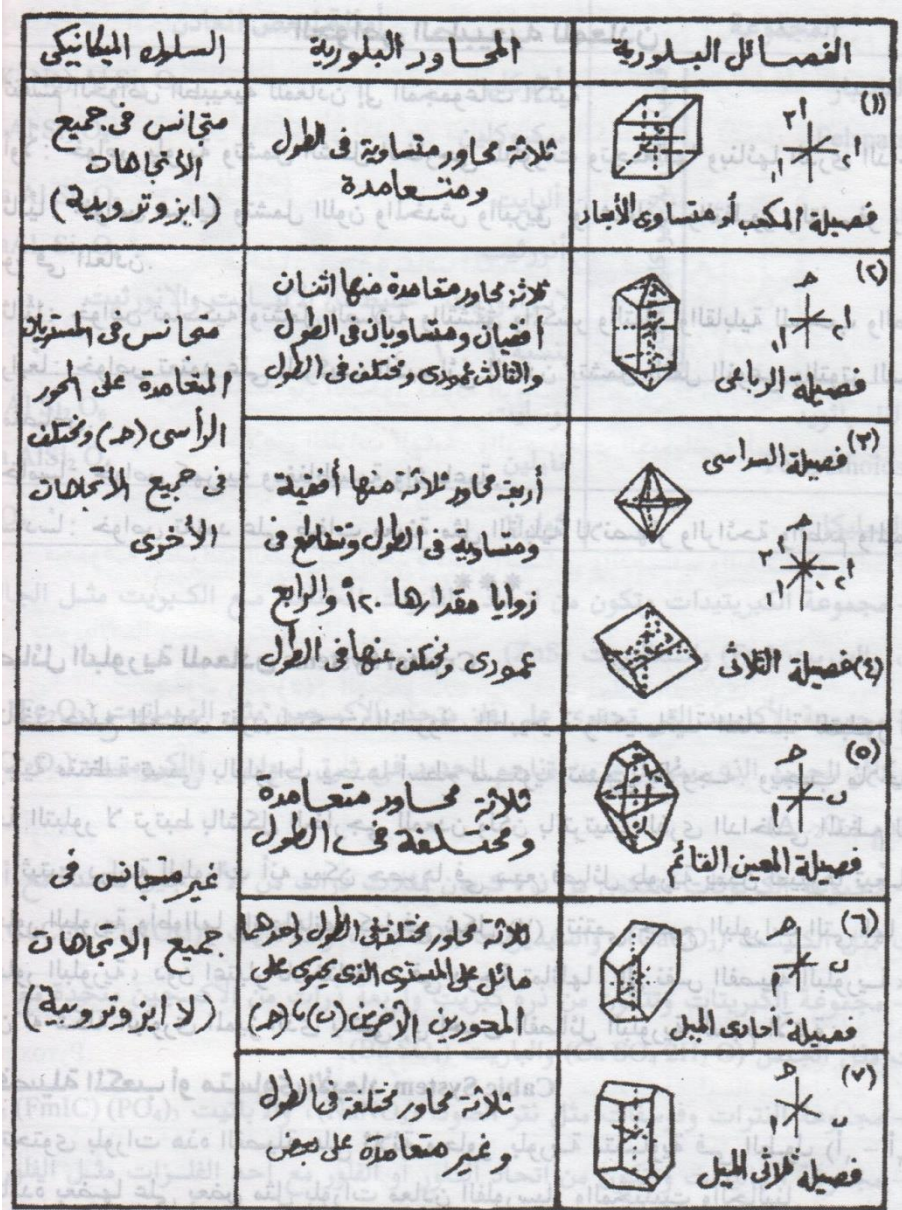 الفصائل البلورية
المحاور البلورية
السلوك الميكانيكى
(١)
أ٣
أ٢
أ١
فصيلة المكعب أو متساوى الأبعاد
ثلاثة محاور متساوية فى الطول
ومتعامدة
متجانس فى جميع
الاتجاهات
(ايزوتروبية)
(٢)
حـ
أ٢
أ١
فصيلة الرباعى
ثلاثة محاور متعامدة منها اثنان
أفقيان ومتساويان فى الطول
والثالث عمودى ومختلف فى الطول
متجانس فى المستويات
المتعامدة على المحور
الرأسى (حـ) ومختلف
فى جميع الاتجاهات
الأخرى
(٣) فصيلة السداسى
حـ
أ٣
أ٢
أ١
(٤) فصيلة الثلاثى
أربعة محاور ثلاثة منها أفقية
ومتساوية فى الطول وتتقاطع فى
زوايا مقدارها ١٢٠° والرابع
عمودى ومختلف عنها فى الطول
(٥)
حـ
ب
أ
فصيلة المعين القائم
ثلاثة محاور متعامدة
ومختلفة فى الطول
غير متجانس فى
جميع الاتجاهات
(لا ايزوتروبية)
(٦)
حـ
ب
أ
فصيلة أحادى الميل
ثلاثة محاور مختلفة فى الطول احدها
مائل على المستوى الذى يحوى على
المحورين الآخرين (ب)، (حـ)
(٧)
حـ
ب
أ
فصيلة ثلاثى الميل
ثلاثة محاور مختلفة فى الطول
وغير متعامدة على بعض